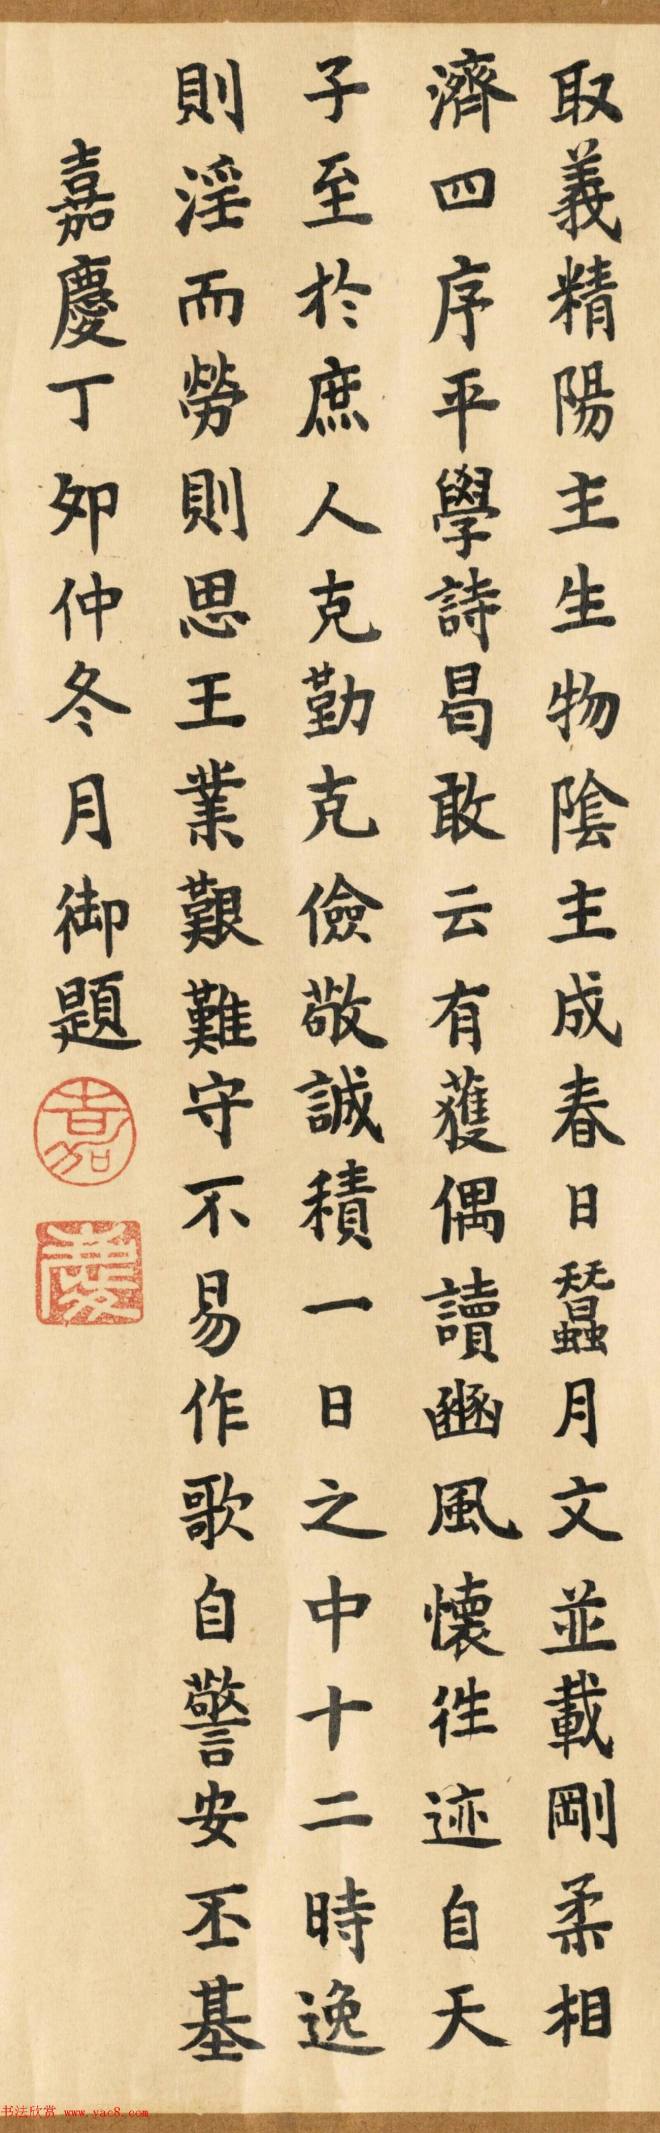 取義精陽主生物陰主成春日蠶月文並載剛柔相
濟四序平學詩曷敢云有獲偶讀豳風懐徃迹自天
子至於庶人克勤克儉敬誠積一日之中十二時逸
則淫而勞則思王業艱難守不易作歌自警安丕基
嘉慶丁夘仲冬月御題
嘉
慶
书法欣赏 www.yac8.com